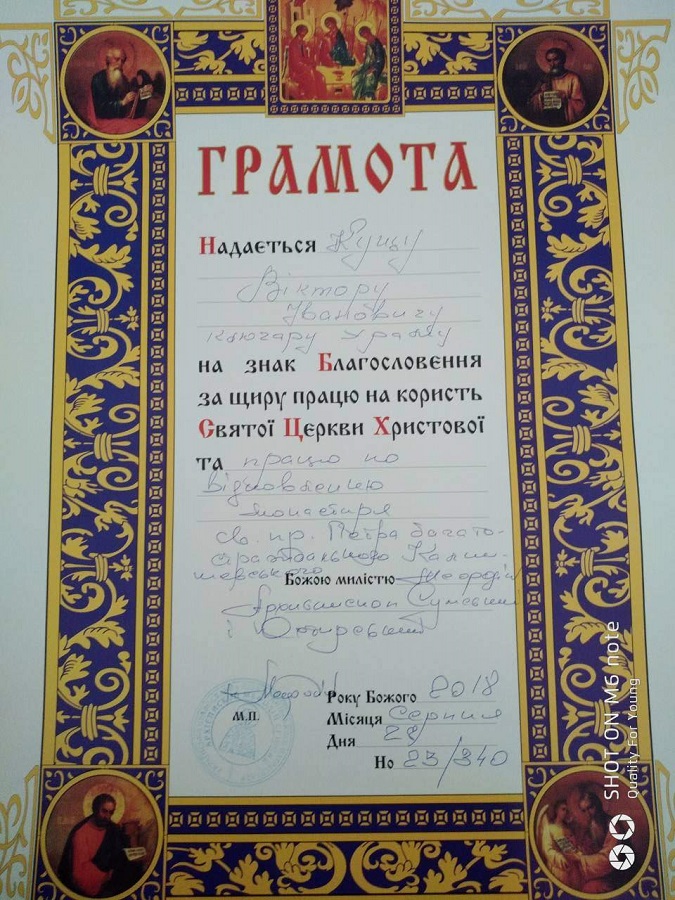 ГРАМОТА
Надається Куцу
Віктору
Івановичу
ключару храму
на знак Благословення
за щиру працю на користь
Святої Церкви Христової
та працю по
відновленню
монастиря
св. пр. Петра багато-
страждального Кални-
шевського
Божою милістю Мефодій
Архиєпископ Сумський
і Охтирський
М.П.
Року Божого 2018
Місяця Серпня
Дня 28
Но 23/340
SHOT ON M6 note
Quality For Young